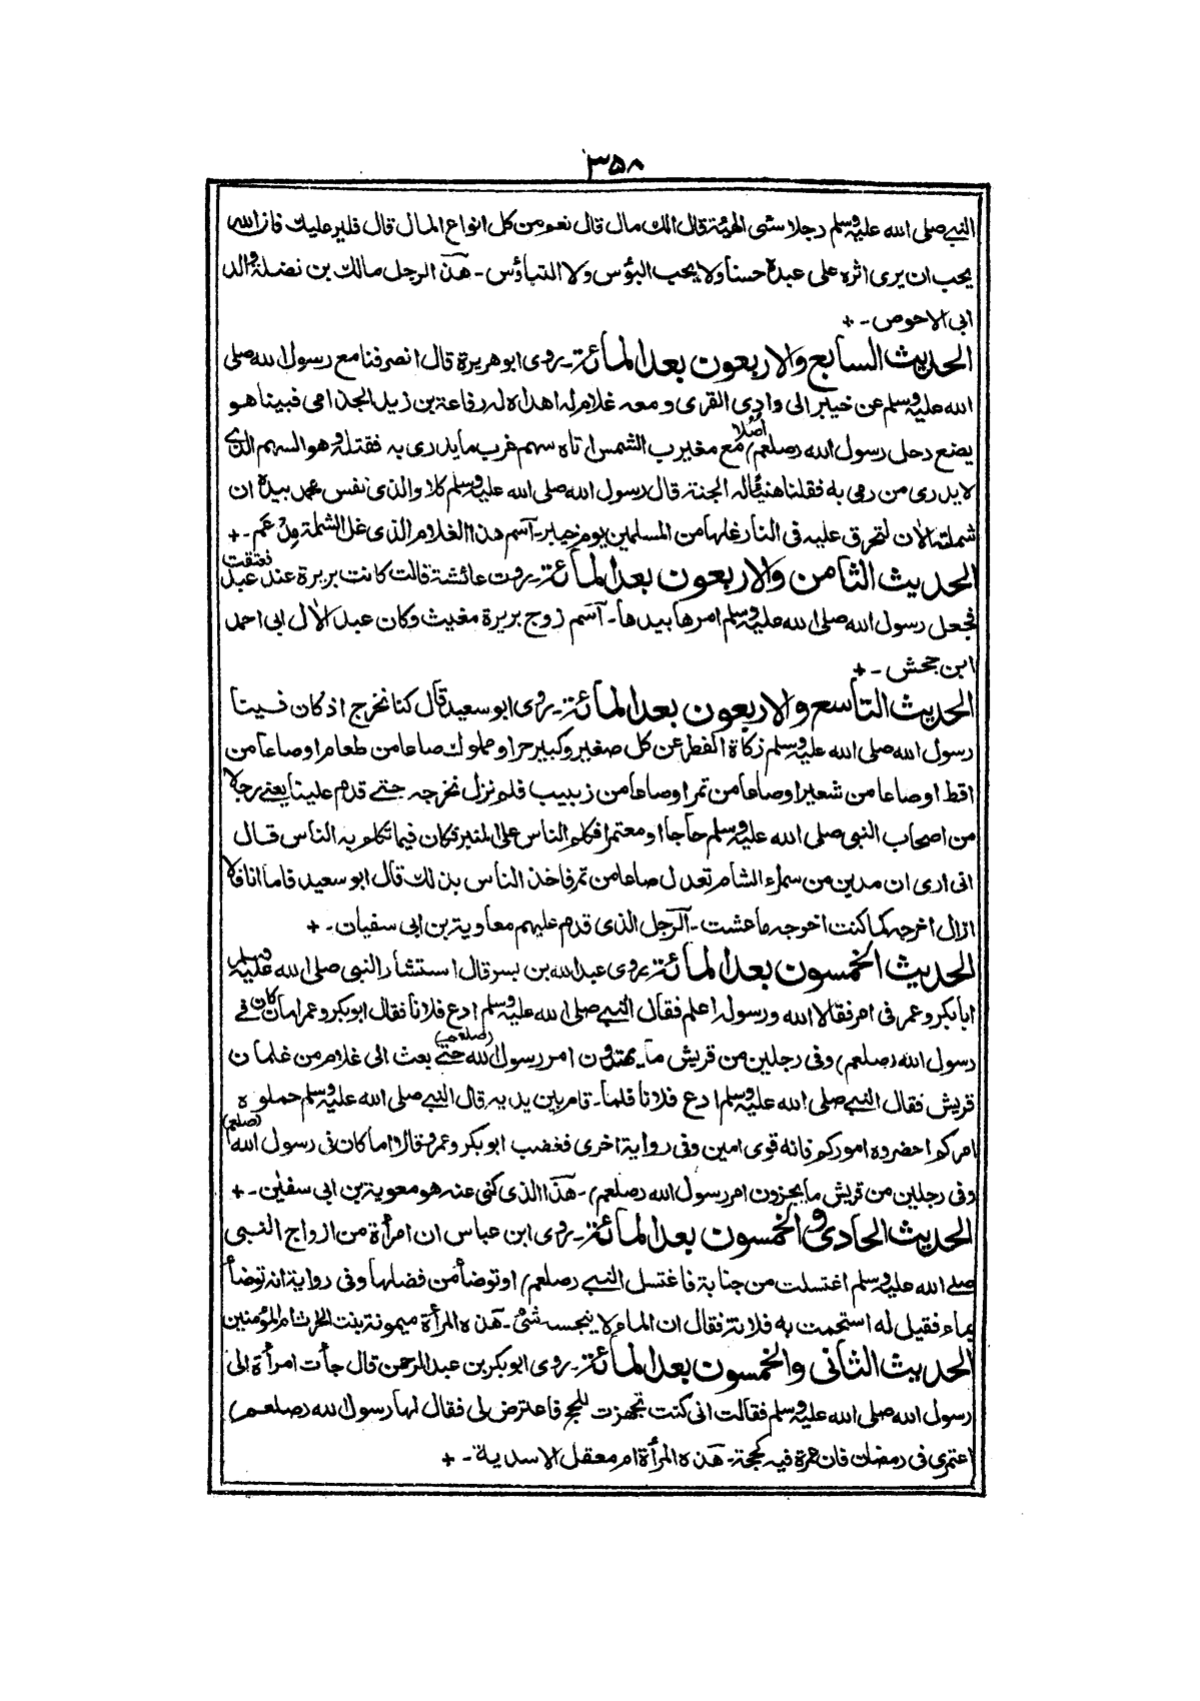 ۳۵۸
النبی صلی الله علیه وسلم رجلا سئی الهیئة قال الك مال قال نعم من كل انواع المال قال فلیر علیك فان الله
یحب ان یری اثره علی عبده حسنا ولا یحب البؤس ولا التباؤس - هذا الرجل مالك بن نضلة والد
ابی الاحوص - +
الحدیث السابع والاربعون بعد المائة - روی ابو هریرة قال انصرفنا مع رسول الله صلی
الله علیه وسلم عن خیبر الی وادی القری و معه غلام له اهداه له رفاعة بن زید الجذامی فبینا هو
یضع رحل رسول الله (صلعم) أصلا مع مغیرب الشمس اتاه سهم غرب ما یدری به فقتله وهو السهم الذی
لا یدری من رمی به فقلنا هنیئا له الجنة قال رسول الله صلی الله علیه وسلم كلا والذی نفس محمد بیده ان
شملته الأن لتحرق علیه فی النار غلها من المسلمین یوم خیبر - اسم هذا الغلام الذی غل الشملة مدعم - +
الحدیث الثامن والاربعون بعد المائة - روت عائشة قالت كانت بریرة عند عبد فعتقت
فجعل رسول الله صلی الله علیه وسلم امرها بیدها - اسم زوج بریرة مغیث وكان عبد الأل ابی احمد
ابن جحش - +
الحدیث التاسع والاربعون بعد المائة - روی ابو سعید قال كنا نخرج اذ كان فینا
رسول الله صلی الله علیه وسلم زكاة الفطر عن كل صغیر وكبیر حر او مملوك صاعا من طعام او صاعا من
اقط او صاعا من شعیر او صاعا من تمر او صاعا من زبیب فلم نزل نخرجه حتی قدم علینا یعنی رجلا
من اصحاب النبی صلی الله علیه وسلم حاجا او معتمرا فكلم الناس علی المنبر فكان فیما تكلم به الناس قال
انی اری ان مدین من سمراء الشام تعدل صاعا من تمر فاخذ الناس بذلك قال ابو سعید فاما انا فلا
ازال اخرجه كما كنت اخرجه ما عشت - الرجل الذی قدم علیهم معاویة بن ابی سفیان - +
الحدیث الخمسون بعد المائة - روی عبد الله بن بسر قال استشار النبی صلی الله علیه وسلم
ابا بكر وعمر فی امر فقالا الله ورسوله اعلم فقال النبی صلی الله علیه وسلم ادع فلانا فقال ابو بكر وعمر اما كان فی
رسول الله (صلعم) وفی رجلین من قریش ما یمتدون امر رسول الله (صلعم) حتی بعث الی غلام من غلمان
قریش فقال النبی صلی الله علیه وسلم ادع فلانا فلما - قام بین یدیه قال النبی صلی الله علیه وسلم حملوه
امركم احضروه اموركم فانه قوی امین وفی روایة اخری فغضب ابو بكر وعمر وقالا اما كان فی رسول الله (صلعم)
وفی رجلین من قریش ما یجزون امر رسول الله (صلعم) - هذا الذی كنی عنه هو معویة بن ابی سفین - +
الحدیث الحادی والخمسون بعد المائة - روی ابن عباس ان امرأة من ازواج النبی
صلی الله علیه وسلم اغتسلت من جنابة فاغتسل النبی (صلعم) او توضأ من فضلها وفی روایة انه توضأ
بماء فقیل له استحمت به فلانة فقال ان الماء لا ینجسه شئ - هذه المرأة میمونة بنت الحرث ام المؤمنین
الحدیث الثانی والخمسون بعد المائة - روی ابو بكر بن عبد الرحمن قال جأت امرأة الی
رسول الله صلی الله علیه وسلم فقالت انی كنت تجهزت للحج فاعترض لی فقال لها رسول الله (صلعم)
اعتمری فی رمضان فان عمرة فیه كحجة - هذه المرأة ام معقل الاسدیة - +